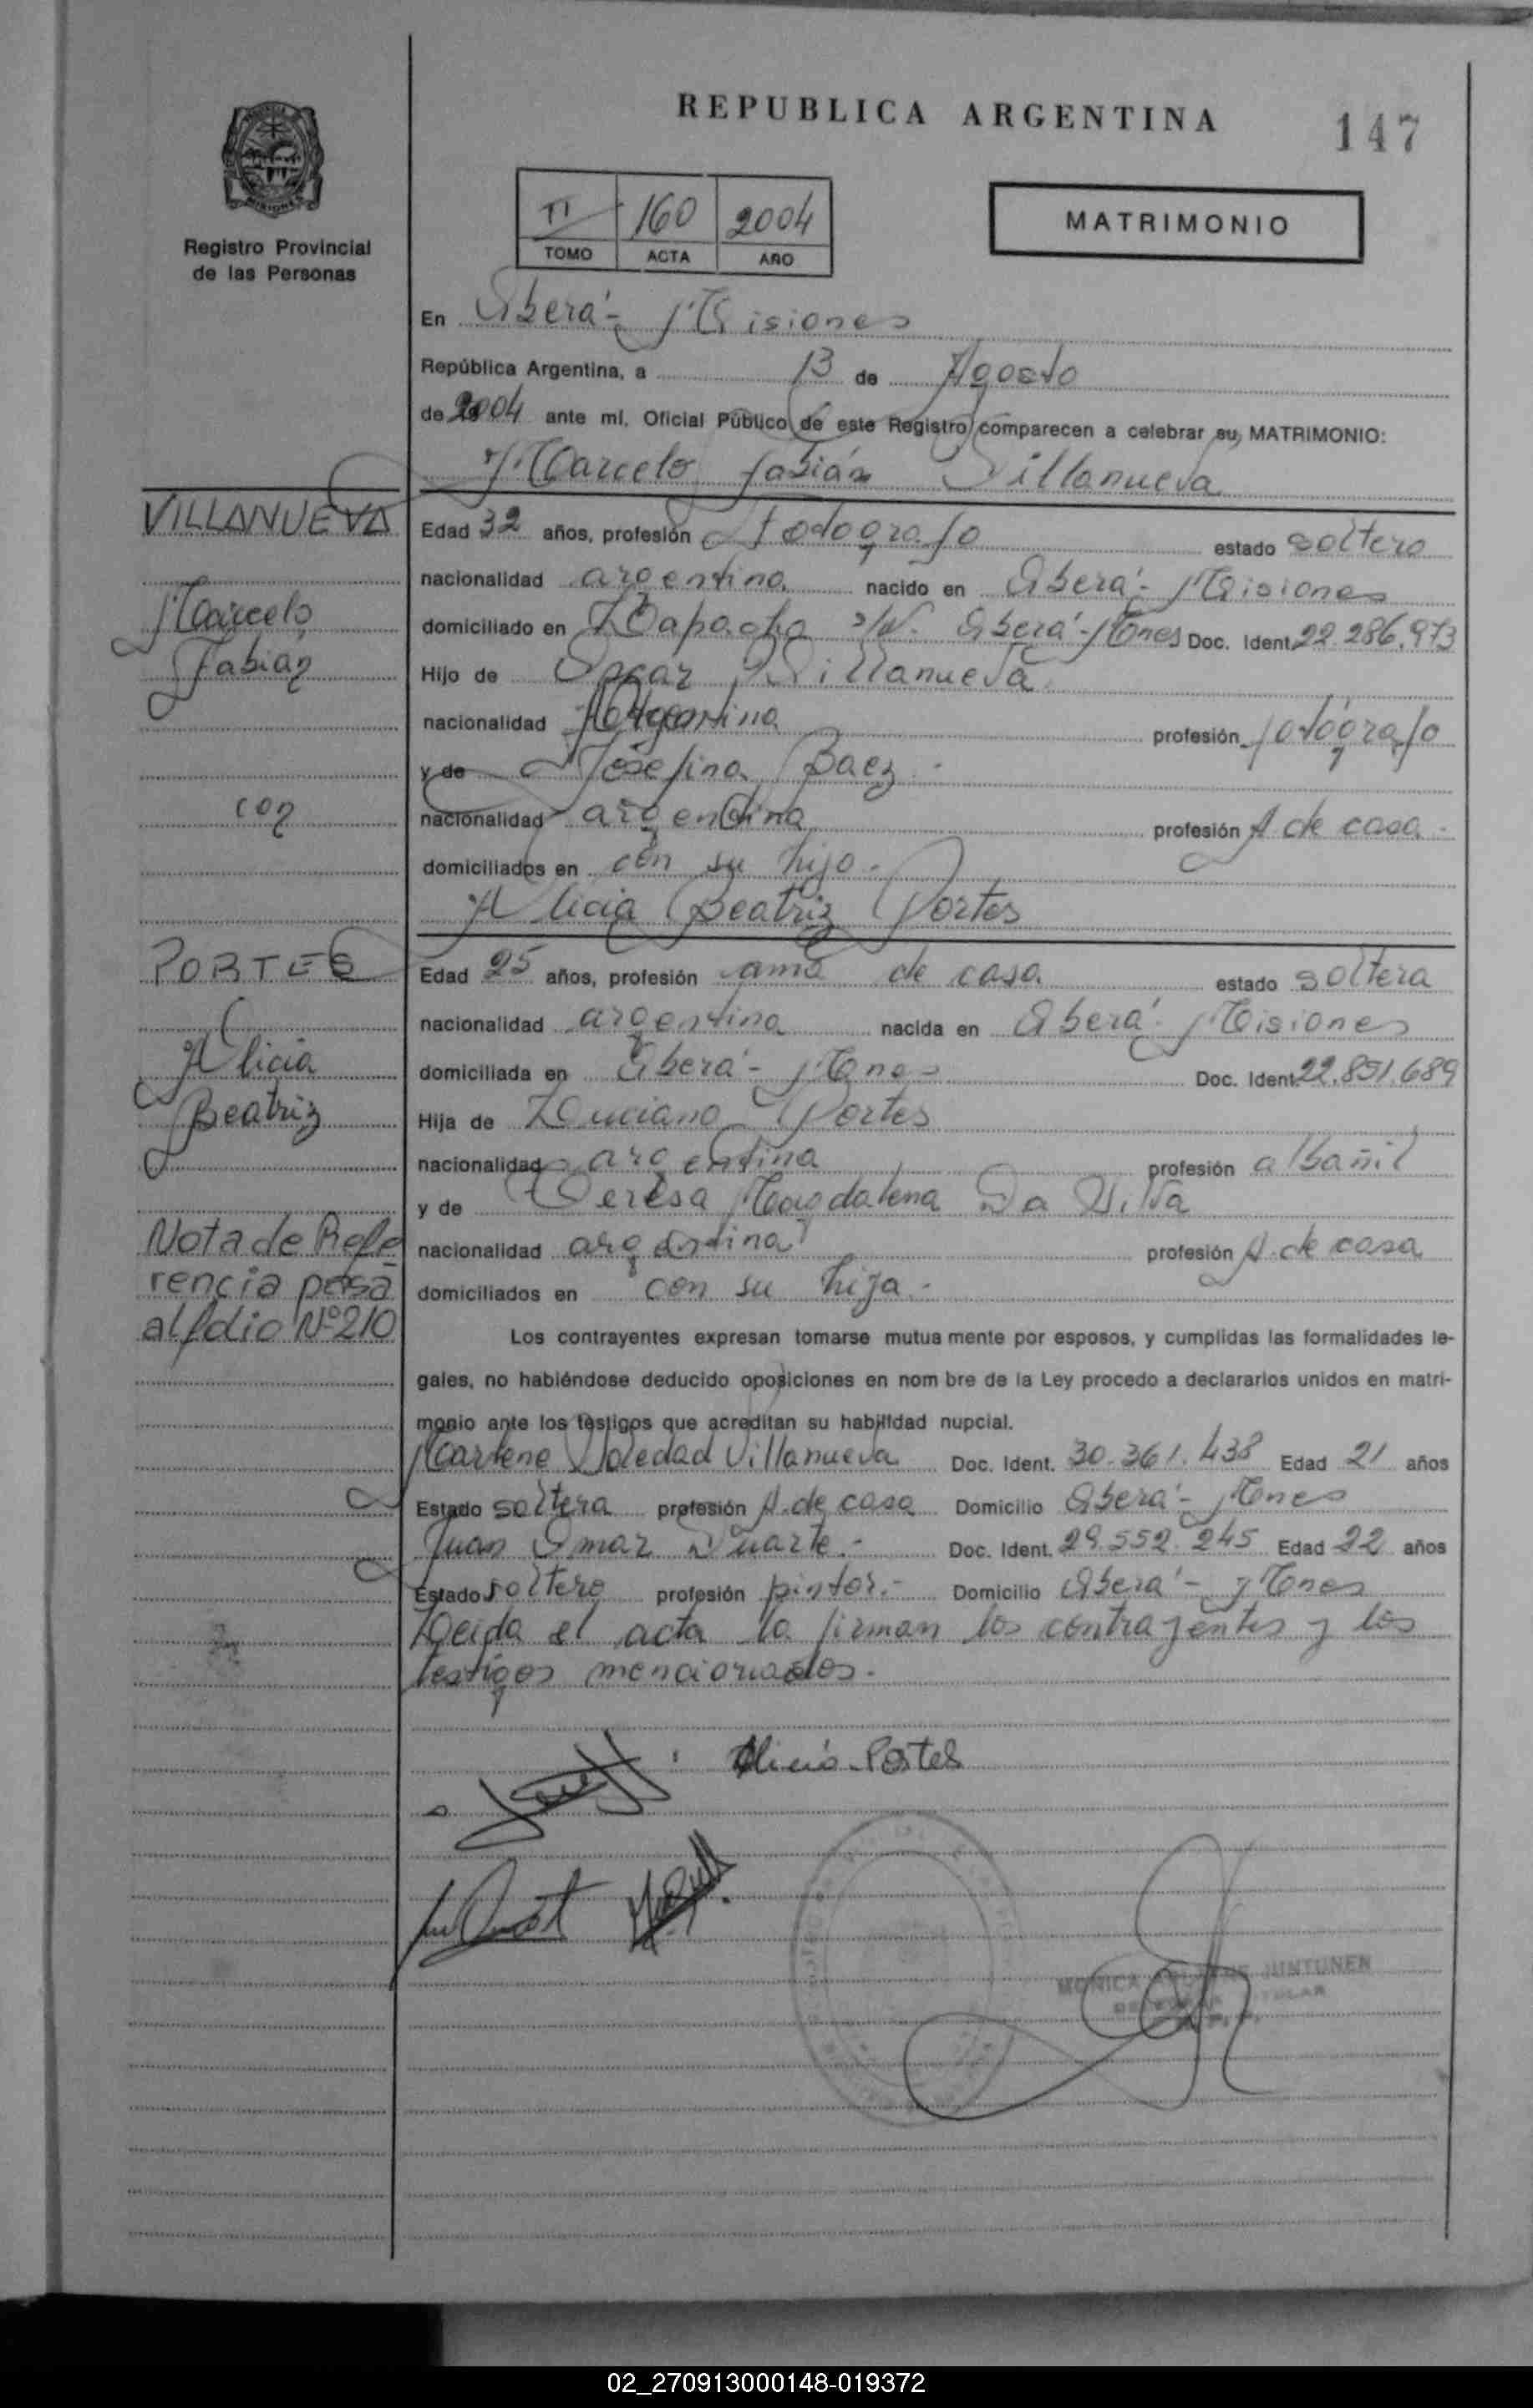 REPUBLICA ARGENTINA
147
Registro Provincial
de las Personas
II 160 2004
TOMO ACTA AÑO
MATRIMONIO
En Oberá - Misiones
República Argentina, a 13 de Agosto
de 2004 ante mi, Oficial Público de este Registro comparecen a celebrar su MATRIMONIO:
Marcelo Fabián Villanueva
VILLANUEVA
Marcelo
Fabian
con
PORTES
Alicia
Beatriz
Nota de Refe
rencia pasa
al folio Nº 210
Edad 32 años, profesión fotografo estado soltero
nacionalidad argentina nacido en Oberá - Misiones
domiciliado en Lapacho s/N. Oberá - Mnes Doc. Ident. 22.286.973
Hijo de Oscar Villanueva
nacionalidad Argentina profesión fotógrafo
y de Josefina Baez.
nacionalidad argentina profesión A de casa.
domiciliados en con su hijo.-
Alicia Beatriz Portes
Edad 25 años, profesión ama de casa estado soltera
nacionalidad argentina nacida en Oberá - Misiones
domiciliada en Oberá - Mnes Doc. Ident. 22.891.689
Hija de Luciano Portes
nacionalidad argentina profesión albañil
y de Teresa Magdalena Da Silva
nacionalidad argentina profesión A. de casa
domiciliados en con su hija.-
Los contrayentes expresan tomarse mutua mente por esposos, y cumplidas las formalidades le-
gales, no habiéndose deducido oposiciones en nom bre de la Ley procedo a declararlos unidos en matri-
monio ante los testigos que acreditan su habilidad nupcial.
Marlene Soledad Villanueva Doc. Ident. 30.361.438 Edad 21 años
Estado soltera profesión A. de casa Domicilio Oberá - Mnes
Juan Omar Duarte.- Doc. Ident. 29.552.245 Edad 22 años
Estado soltero profesión pintor.- Domicilio Oberá - Mnes
Leida el acta la firman los contrayentes y los
testigos mencionados.-
Alicia Portes
MONICA JUNTUNEN
02_270913000148-019372